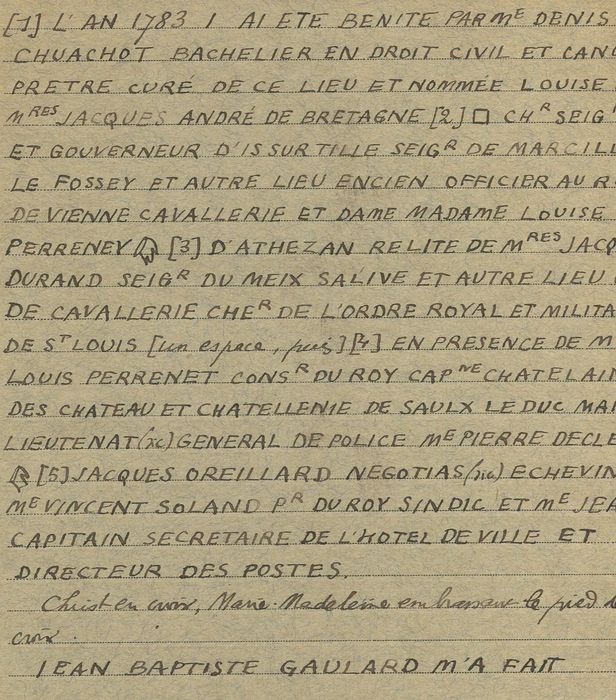 [1] L'AN 1783 I AI ETE BENITE PAR Mᴱ DENIS
CHUACHOT BACHELIER EN DROIT CIVIL ET CAN
PRETRE CURÉ DE CE LIEU ET NOMMÉE LOUISE
Mᴿᴱˢ JACQUES ANDRÉ DE BRETAGNE [2] □ CHᴿ SEIGᴿ
ET GOUVERNEUR D'IS SUR TILLE SEIGᴿ DE MARCILL
LE FOSSEY ET AUTRE LIEU ENCIEN OFFICIER AU R
DE VIENNE CAVALLERIE ET DAME MADAME LOUISE
PERRENEY [3] D'ATHEZAN RELITE DE Mᴿᴱˢ JACQ
DURAND SEIGᴿ DU MEIX SALIVE ET AUTRE LIEU
DE CAVALLERIE CHEᴿ DE L'ORDRE ROYAL ET MILITA
DE Sᵀ LOUIS [un espace, puis] [4] EN PRESENCE DE M
LOUIS PERRENET CONSᴿ DU ROY CAPᴺᴱ CHATELAIN
DES CHATEAU ET CHATELLENIE DE SAULX LE DUC MAI
LIEUTENAT (sic) GENERAL DE POLICE Mᴱ PIERRE DECLE
[5] JACQUES OREILLARD NEGOTIAS (sic) ECHEVIN
Mᴱ VINCENT SOLAND Pᴿ DU ROY SINDIC ET Mᴱ JEA
CAPITAIN SECRETAIRE DE L'HOTEL DE VILLE ET
DIRECTEUR DES POSTES.
Christ en croix, Marie-Madeleine embrassant le pied d
croix.
IEAN BAPTISTE GAULARD M'A FAIT